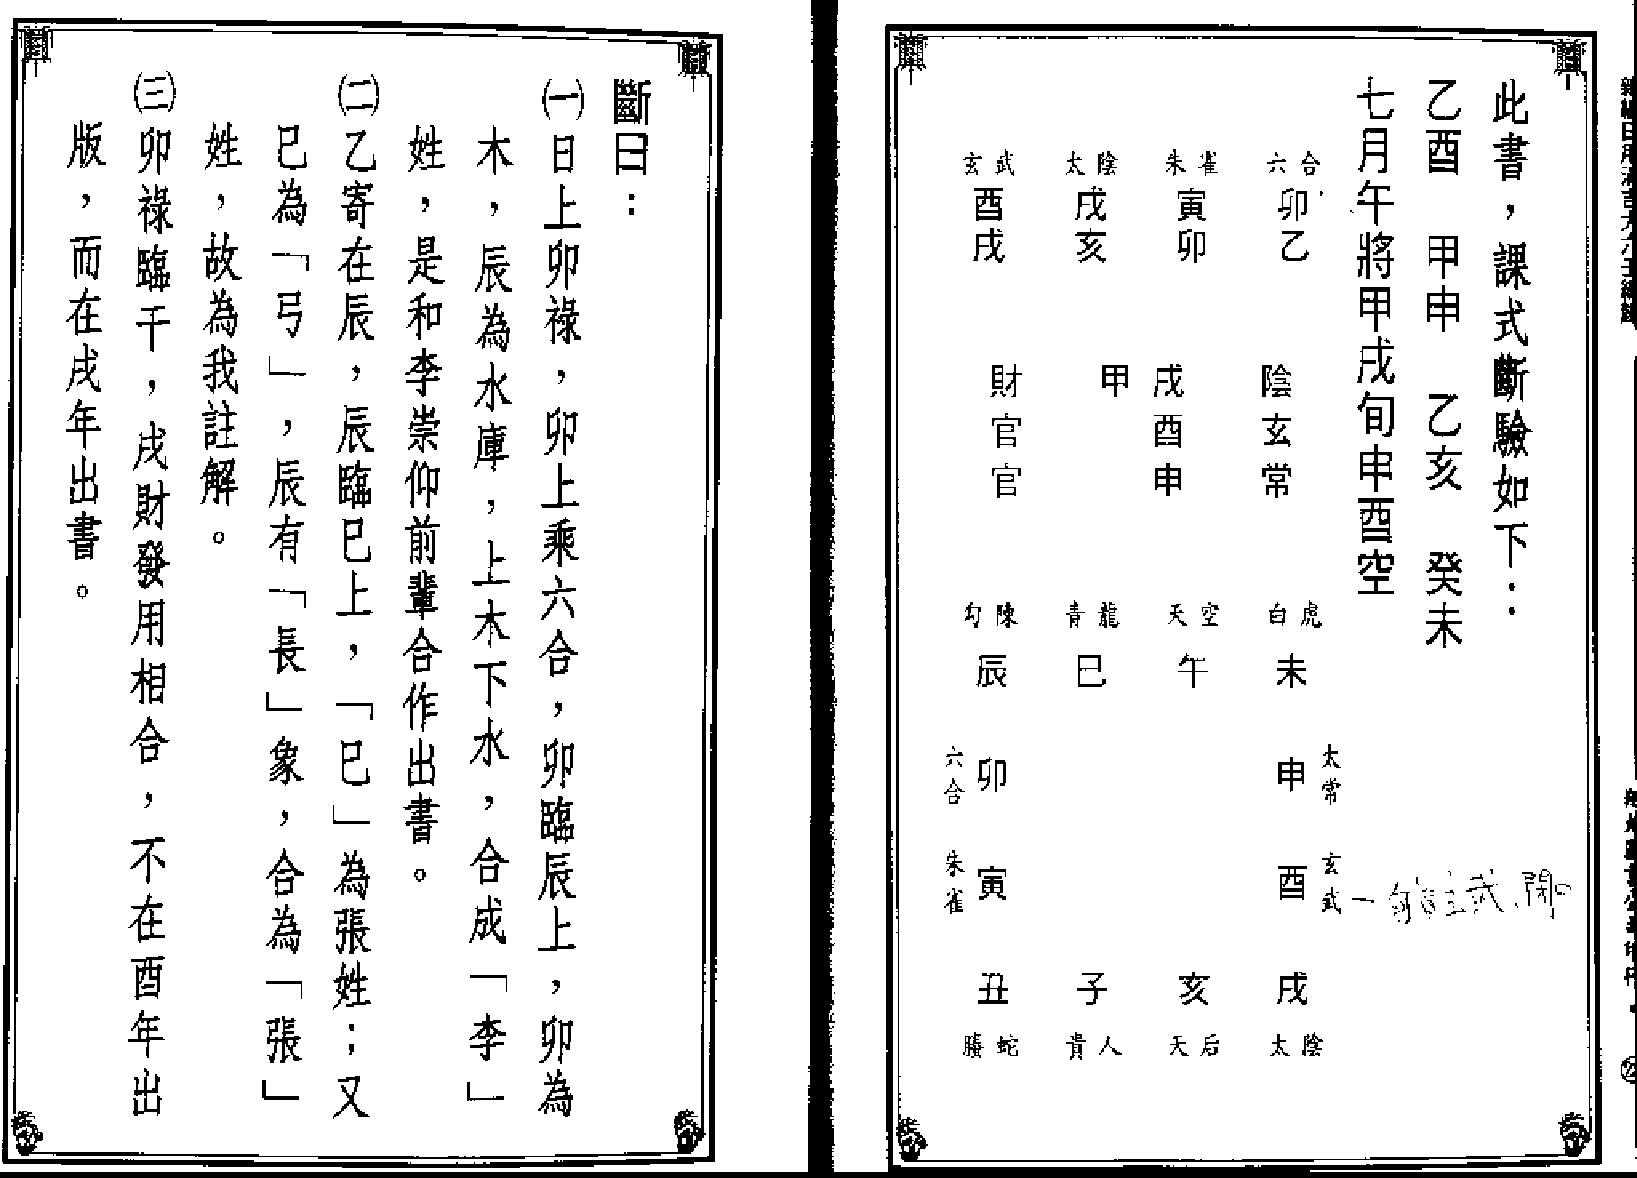 此書，課式斷驗如下：
乙酉　甲申　乙亥　癸未
七月午將甲戌旬申酉空
六合　朱雀　太陰　玄武
卯　寅　戌　酉
乙　卯　亥　戌
陰　戌　甲　財
玄　酉　官
常　申　官
白虎　天空　青龍　勾陳
未　午　巳　辰
太常　申　卯　六合
玄武　酉　寅　朱雀
戌　亥　子　丑
太陰　天后　貴人　螣蛇
斷曰：
㈠日上卯祿，卯上乘六合，卯臨辰上，卯為
木，辰為水庫，上木下水，合成「李」
姓，是和李崇仰前輩合作出書。
㈡乙寄在辰，辰臨巳上，「巳」為張姓；又
巳為「弓」，辰有「長」象，合為「張」
姓，故為我註解。
㈢卯祿臨干，戌財發用相合，不在酉年出
版，而在戌年出書。